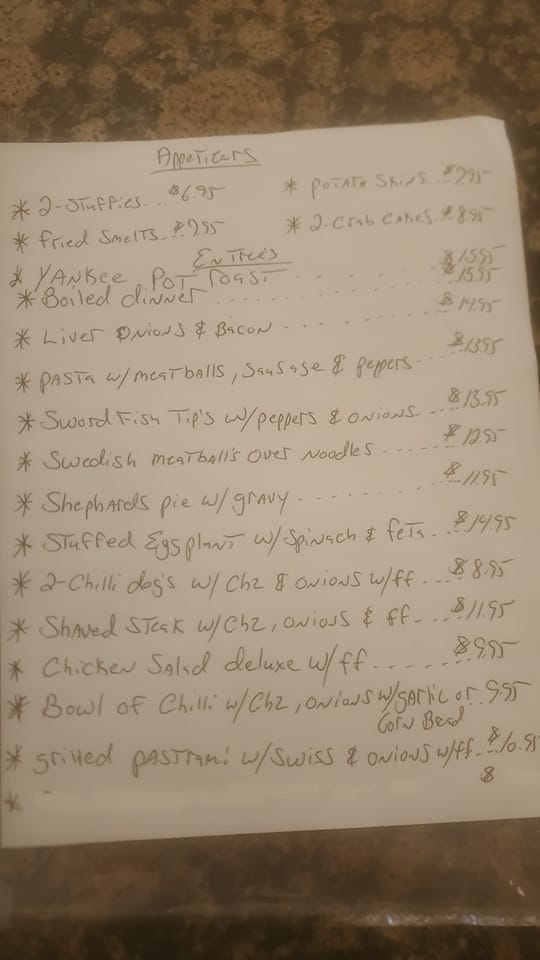 Appetizers
* 2-Stuffies... $6.95 * potato skins.. $7.95
* fried smelts.. $7.95 * 2-Crab Cakes. $8.95
Entree's
* YANKEE POT ROAST . . . . $15.95
* Boiled dinner . . . . . . . . $15.95
* Liver Onions & Bacon - - - . - . . $14.95
* pasta w/ meatballs, sausage & peppers ..... $13.95
* Sword Fish Tip's w/peppers & onions .... $13.95
* Swedish meatball's over noodles ....... $12.95
* Shephards pie w/ gravy - . . - . . . . . $11.95
* Stuffed Eggsplant w/ spinach & feta .. $14.95
* 2-Chilli dog's w/ Chz & onions w/ff ... $8.95
* Shaved steak w/ Chz, onions & ff .... $11.95
* Chicken Salad deluxe w/ff . . . . . . . $9.95
* Bowl of Chilli w/Chz, onions w/garlic or 9.95
Corn Bead
* grilled pastrami w/swiss & onions w/ff.. $10.95
* - $